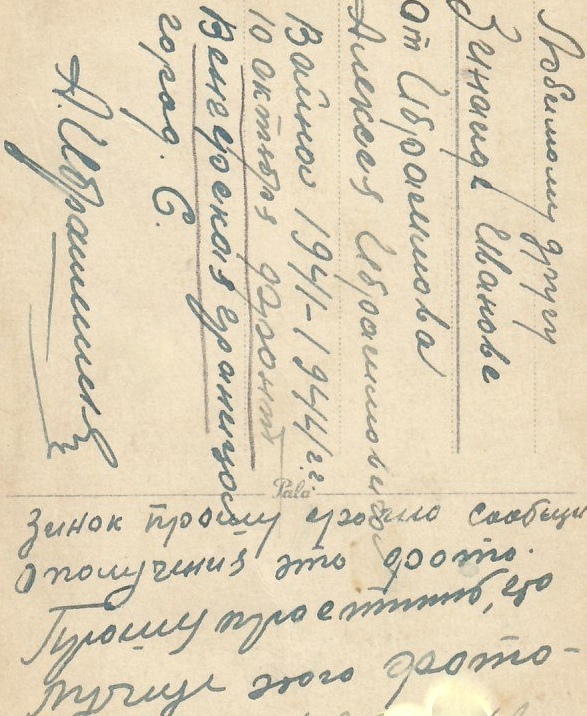 Любимому другу
Зинаиде Ивановне
от Ибрагимова
Алексея Ибрагимовича
Война 1941-1944/г.г.
10 октября фронт
Венгерская граница
город С.
А. Ибрагимов
Pala
Зинок прошу срочно сообщи
о получения это фото.
Прошу простить, что
лучше этого фото-